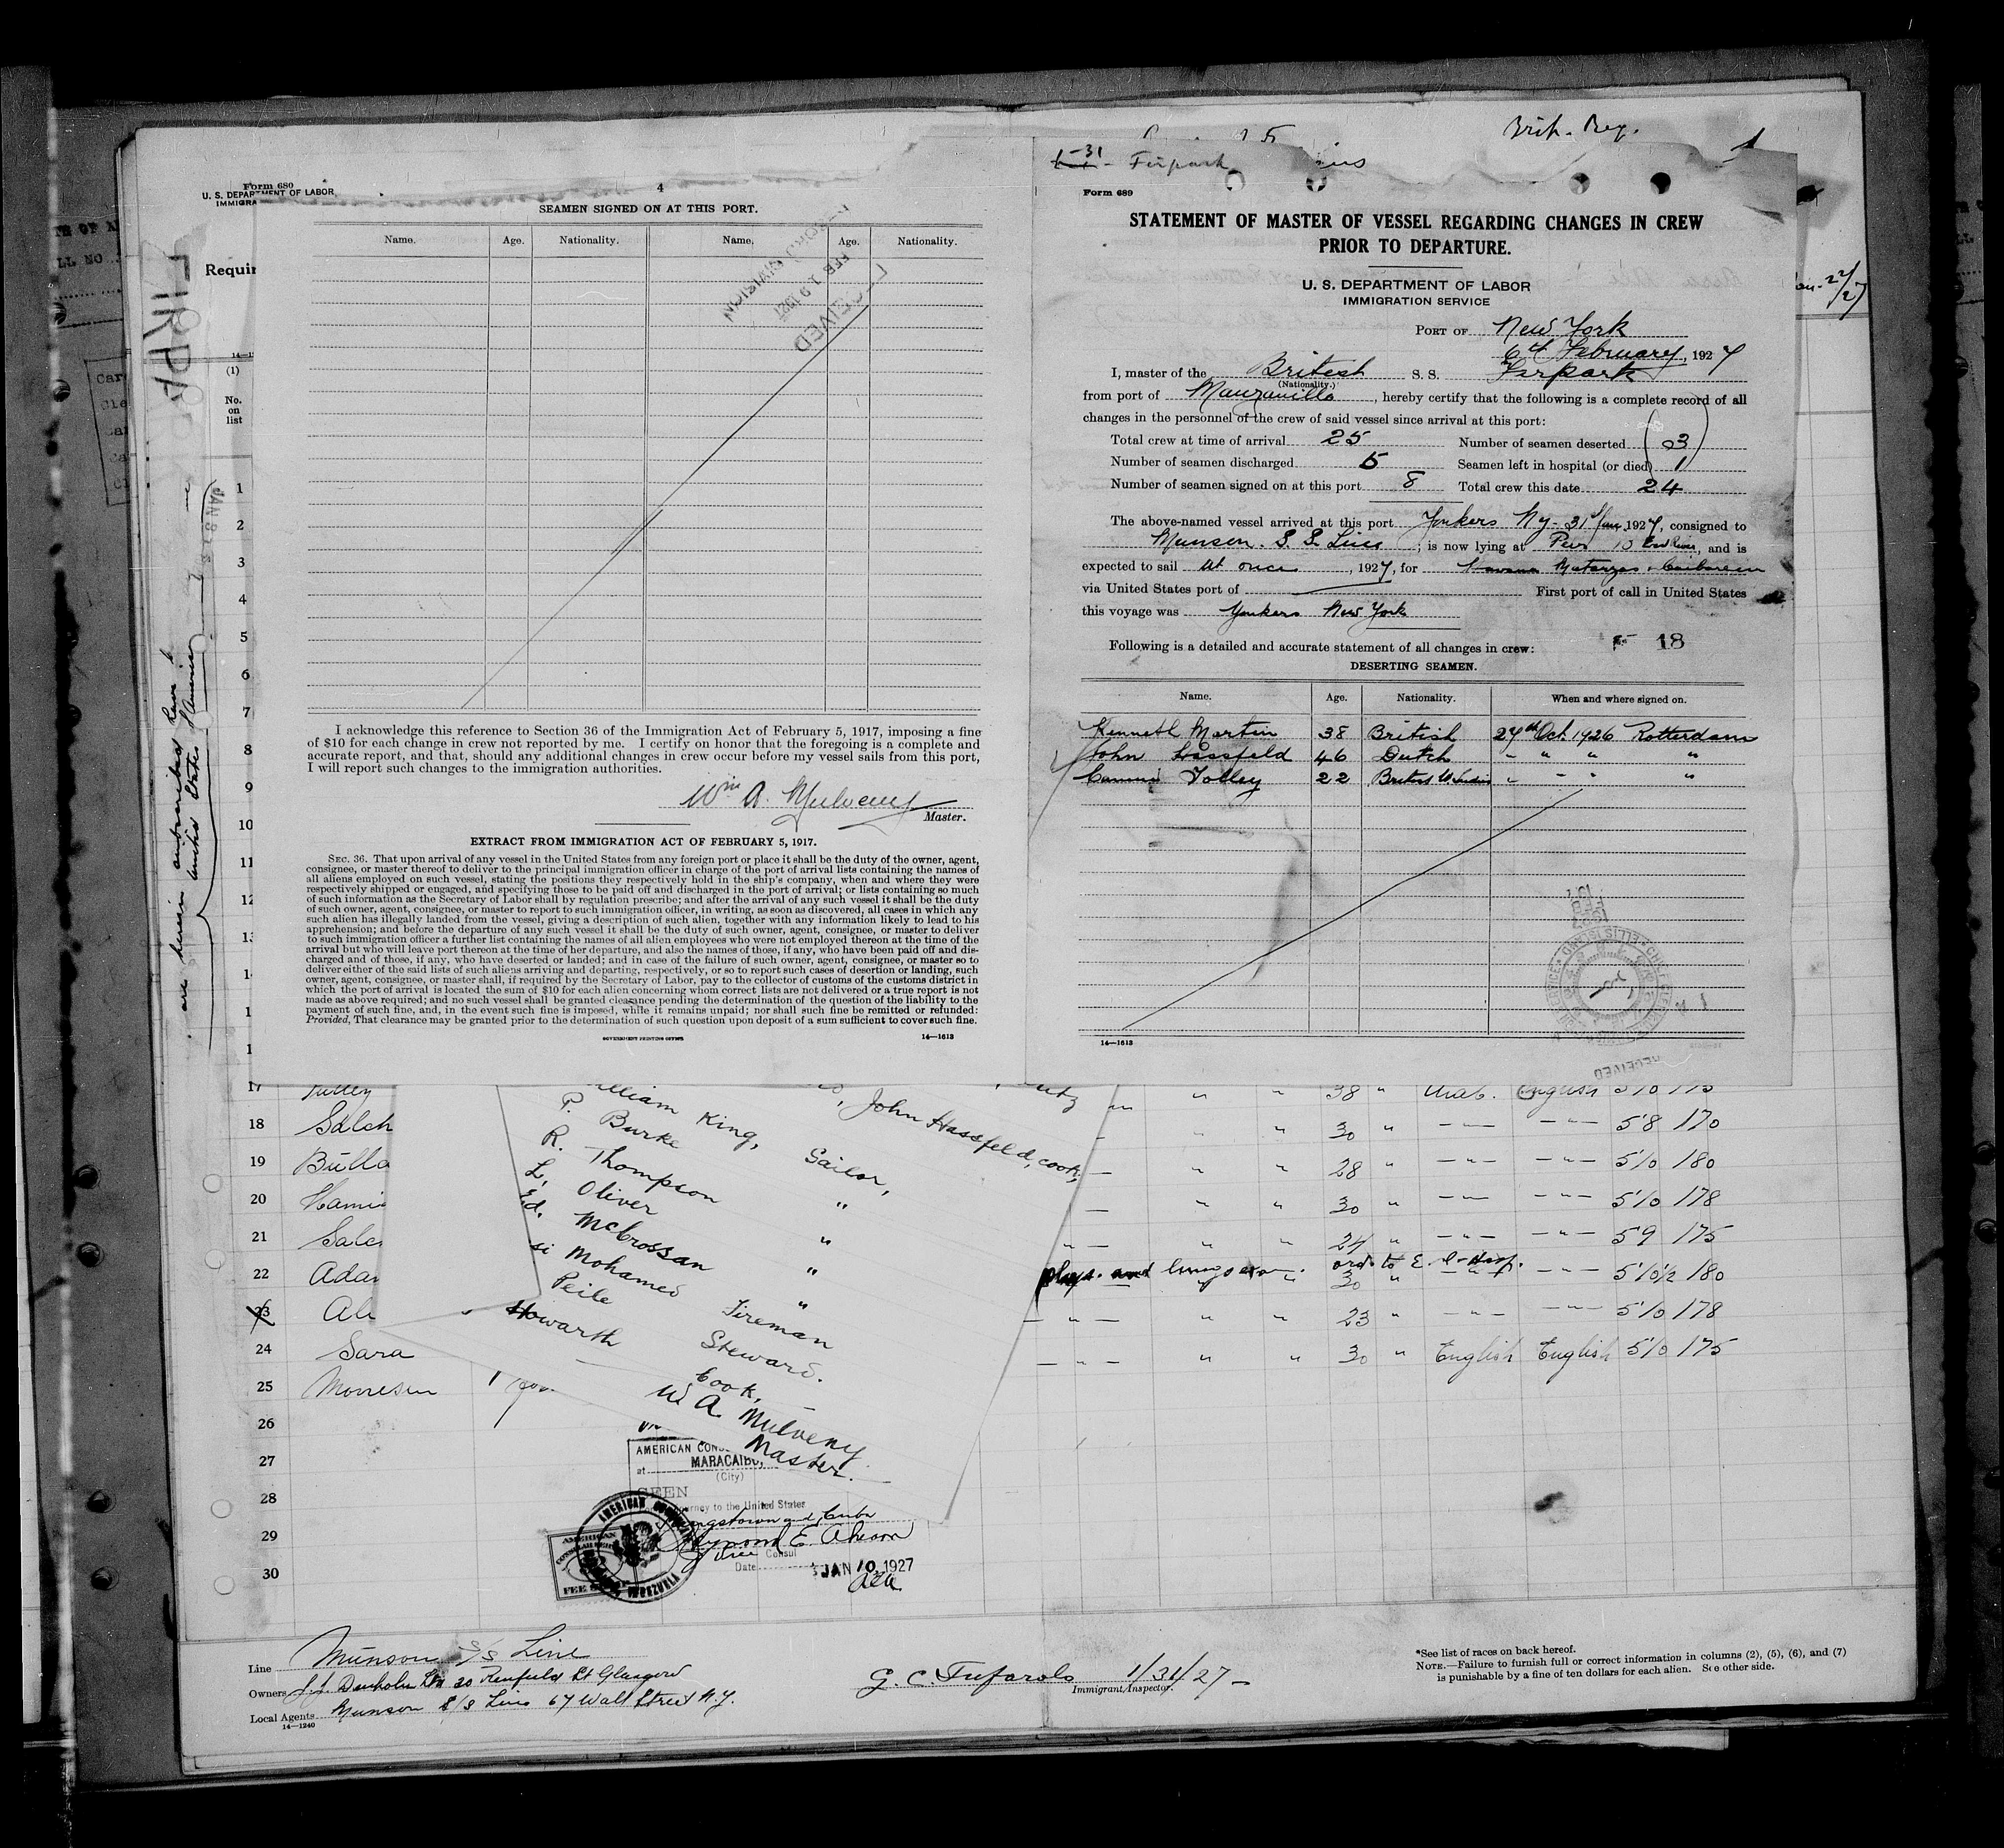 Form 680
U. S. DEPARTMENT OF LABOR
IMMIGRA
Requir
(1)
No.
on
list
4
SEAMEN SIGNED ON AT THIS PORT.
Name. Age. Nationality. Name. Age. Nationality.
RECEIVED
FEB 19 1927
RECORD DIVISION
I acknowledge this reference to Section 36 of the Immigration Act of February 5, 1917, imposing a fine
of $10 for each change in crew not reported by me. I certify on honor that the foregoing is a complete and
accurate report, and that, should any additional changes in crew occur before my vessel sails from this port,
I will report such changes to the immigration authorities.
Wm A. Mulveny
Master.
EXTRACT FROM IMMIGRATION ACT OF FEBRUARY 5, 1917.
SEC. 36. That upon arrival of any vessel in the United States from any foreign port or place it shall be the duty of the owner, agent,
consignee, or master thereof to deliver to the principal immigration officer in charge of the port of arrival lists containing the names of
all aliens employed on such vessel, stating the positions they respectively hold in the ship's company, when and where they were
respectively shipped or engaged, and specifying those to be paid off and discharged in the port of arrival; or lists containing so much
of such information as the Secretary of Labor shall by regulation prescribe; and after the arrival of any such vessel it shall be the duty
of such owner, agent, consignee, or master to report to such immigration officer, in writing, as soon as discovered, all cases in which any
such alien has illegally landed from the vessel, giving a description of such alien, together with any information likely to lead to his
apprehension; and before the departure of any such vessel it shall be the duty of such owner, agent, consignee, or master to deliver
to such immigration officer a further list containing the names of all alien employees who were not employed thereon at the time of the
arrival but who will leave port thereon at the time of her departure, and also the names of those, if any, who have been paid off and dis-
charged and of those, if any, who have deserted or landed; and in case of the failure of such owner, agent, consignee, or master so to
deliver either of the said lists of such aliens arriving and departing, respectively, or so to report such cases of desertion or landing, such
owner, agent, consignee, or master shall, if required by the Secretary of Labor, pay to the collector of customs of the customs district in
which the port of arrival is located the sum of $10 for each alien concerning whom correct lists are not delivered or a true report is not
made as above required; and no such vessel shall be granted clearance pending the determination of the question of the liability to the
payment of such fine, and, in the event such fine is imposed, while it remains unpaid; nor shall such fine be remitted or refunded:
Provided, That clearance may be granted prior to the determination of such question upon deposit of a sum sufficient to cover such fine.
GOVERNMENT PRINTING OFFICE
14—1613
Brit. Reg.
1-31 - Firpark
Form 689
STATEMENT OF MASTER OF VESSEL REGARDING CHANGES IN CREW
PRIOR TO DEPARTURE.
U. S. DEPARTMENT OF LABOR
IMMIGRATION SERVICE
PORT OF New York
6th February, 1927
I, master of the British S. S. Firpark
(Nationality.)
from port of Manzanillo, hereby certify that the following is a complete record of all
changes in the personnel of the crew of said vessel since arrival at this port:
Total crew at time of arrival 25 Number of seamen deserted 3
Number of seamen discharged 5 Seamen left in hospital (or died) 1
Number of seamen signed on at this port 8 Total crew this date 24
The above-named vessel arrived at this port Yonkers Ny - 31 Jan, 1927, consigned to
Munson S. S. Line; is now lying at Pier 10 East River, and is
expected to sail At once, 1927, for Havana Matanzas & Caibarien
via United States port of First port of call in United States
this voyage was Yonkers New York
18
Following is a detailed and accurate statement of all changes in crew:
DESERTING SEAMEN.
Name. Age. Nationality. When and where signed on.
Kenneth Martin 38 British 24th Oct. 1926 Rotterdam
John Hassfeld 46 Dutch " " " "
Tolley 22 British W Indies " " " "
14—1613
RECEIVED
are herein subscribed have
United States of America
1
2
3
4
5
6
7
8
9
10
11
12
13
17 Tulley 38 " Arab. English 5'10 175
18 Saleh 30 " 5'8 170
19 Bulla 28 " 5'10 180
20 Hami 30 " 5'10 178
21 Sale 24 " 5'9 175
22 Ada 30 " 5'10½ 180
23 Ali 23 " 5'10 178
24 Sara 30 " English English 5'10 175
25
26
27
28
29
30
John Hassfeld, cook,
William King, Sailor,
P. Burke "
R. Thompson "
L. Oliver "
Ed. McCrossan "
si Mohamed Fireman
Peile Steward.
Howarth Cook.
W A Mulveny
Master.
AMERICAN CONS
at MARACAIBO,
(City)
SEEN
journey to the United States
Vice Consul
Date JAN 10 1927
AMERICAN
FEE
VENEZUELA
Line Munson S/S Line
Owners J. J. Denholm Ltd. 20 Renfield St Glasgow
Local Agents Munson S/S Line 67 Wall Street N.Y.
14—1240
1/31/27
Immigrant Inspector.
*See list of races on back hereof.
NOTE.—Failure to furnish full or correct information in columns (2), (5), (6), and (7)
is punishable by a fine of ten dollars for each alien. See other side.